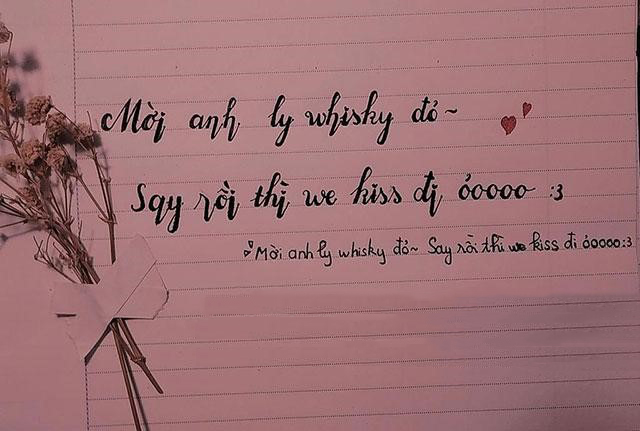 Mời anh ly whisky đỏ~
Say rồi thì we kiss đị ỏoooo :3
Mời anh ly whisky đỏ~ Say rồi thì we kiss đi ỏoooo:3